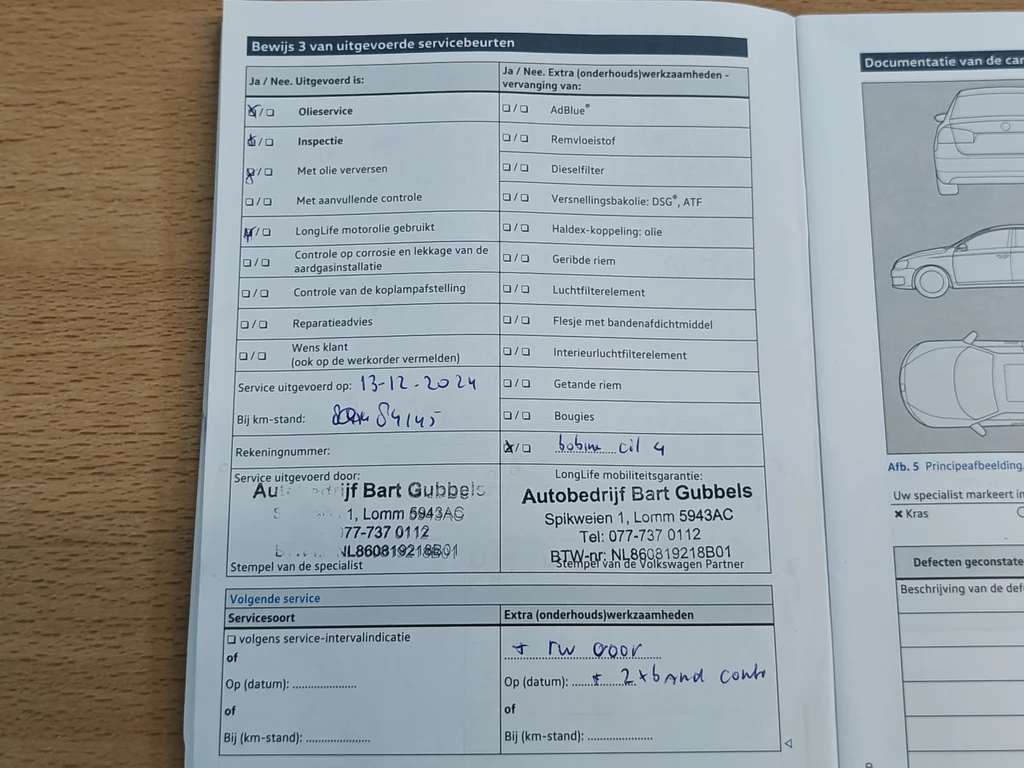 Bewijs 3 van uitgevoerde servicebeurten
Ja / Nee. Uitgevoerd is:
Olieservice
Inspectie
Met olie verversen
Met aanvullende controle
LongLife motorolie gebruikt
Controle op corrosie en lekkage van de
aardgasinstallatie
Controle van de koplampafstelling
Reparatieadvies
Wens klant
(ook op de werkorder vermelden)
Service uitgevoerd op: 13-12-2024
Bij km-stand: 84145
Rekeningnummer:
Ja / Nee. Extra (onderhouds)werkzaamheden -
vervanging van:
AdBlue®
Remvloeistof
Dieselfilter
Versnellingsbakolie: DSG®, ATF
Haldex-koppeling: olie
Geribde riem
Luchtfilterelement
Flesje met bandenafdichtmiddel
Interieurluchtfilterelement
Getande riem
Bougies
bobine cil 4
Service uitgevoerd door:
ijf Bart Gubbels
1, Lomm 5943AC
077-737 0112
NL860819218B01
Stempel van de specialist
LongLife mobiliteitsgarantie:
Autobedrijf Bart Gubbels
Spikweien 1, Lomm 5943AC
Tel: 077-737 0112
BTW-nr: NL860819218B01
Stempel van de Volkswagen Partner
Volgende service
Servicesoort
volgens service-intervalindicatie
of
Op (datum): ....................
of
Bij (km-stand): ....................
Extra (onderhouds)werkzaamheden
+ rw voor
Op (datum): + 2x band contr
of
Bij (km-stand): ....................
Documentatie van de car
Afb. 5 Principeafbeelding.
Uw specialist markeert in
× Kras
Defecten geconstate
Beschrijving van de def